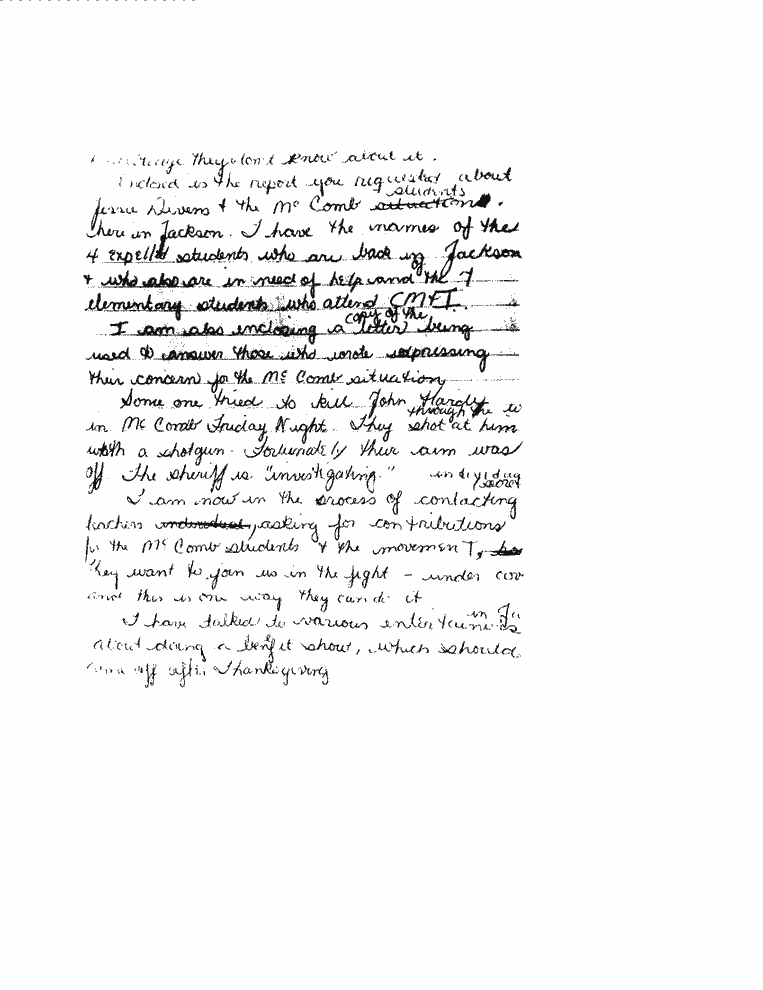 they don't know about it.
Enclosed is the report you requested about
students
Jessie Divens & the McComb situation.
here in Jackson. I have the names of the
4 expelled students who are back in Jackson
& who also are in need of help and the 7
elementary students who attend CMFI.
copy of the
I am also enclosing a letter being
used to answer those who wrote expressing
their concern for the McComb situation
Some one tried to kill John Hardy
through the w
in McComb Friday Night. They shot at him
with a shotgun. Fortunately their aim was
off. The sheriff is "investigating."
secret
I am now in the process of contacting
teachers individual, asking for contributions
for the McComb students & the movement,
They want to join us in the fight - under cov
and this is one way they can do it
in Ja
I have talked to various entertainers
about doing a benefit show, which should
come off after Thanksgiving